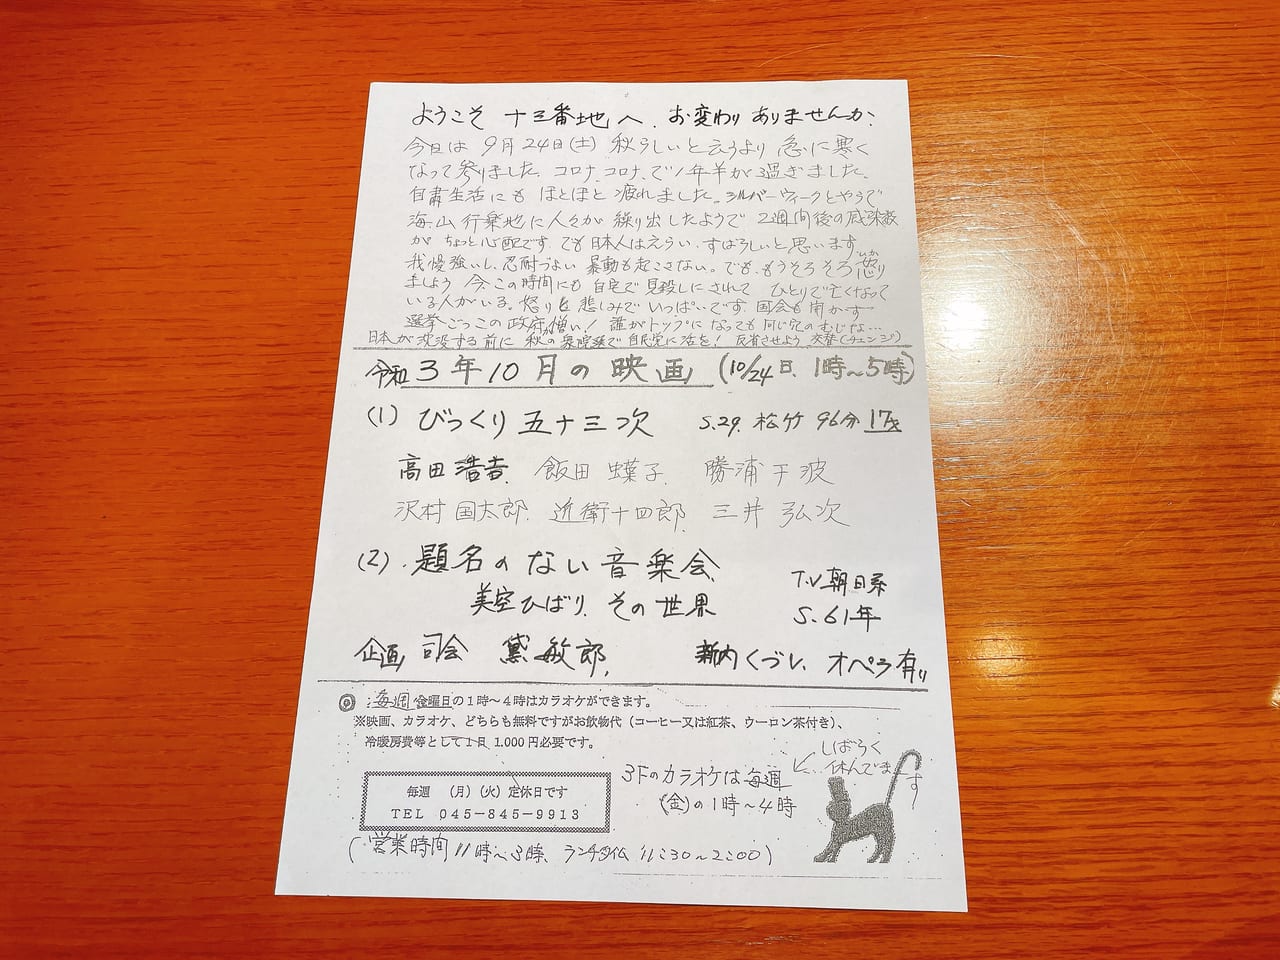 ようこそ 十三番地へ. お変わりありませんか.
今日は 9月24日(土) 秋らしいと云うより 急に寒く
なって参りました. コロナ、コロナ、で1年半が過ぎました.
自粛生活にも ほとほと疲れました。シルバーウィークとやらで
海、山、行楽地に人々が繰り出したようで 2週間後の感染数
が ちょっと心配です. でも日本人はえらい、すばらしいと思います
我慢強いし、忍耐づよい 暴動も起こさない。でも、もうそろそろ怒り
ましょう 今、この時間にも 自宅で見殺しにされて ひとりで亡くなって
いる人がいる。怒りと悲しみで いっぱいです. 国会も開かず
選挙ごっこの政府が憎い! 誰がトップになっても同じ穴のむじな…
日本が沈没する前に 秋の衆院選で自民党に活を! 反省させよう 交替(チェンジ)
令和3年10月の映画 (10/24日、1時〜5時)
(1) びっくり五十三次 S.29. 松竹 96分 17才
高田浩吉. 飯田 蝶子. 勝浦 千波
沢村国太郎. 近衛十四郎. 三井 弘次
(2). 題名のない音楽会
美空ひばり、その世界
T.V朝日系
S.61年
企画 司会 黛敏郎. 新内くづし、オペラ有り
◎:毎週 金曜日の1時〜4時はカラオケができます。
※映画、カラオケ、どちらも無料ですがお飲物代(コーヒー又は紅茶、ウーロン茶付き)、
冷暖房費等として1日 1.000円必要です。
しばらく
…休んでます
3Fのカラオケは毎週
(金)の1時〜4時
毎週 (月)(火)定休日です
TEL 045-845-9913
(営業時間 11時〜3時、ランチタイム 11:30〜2:00)